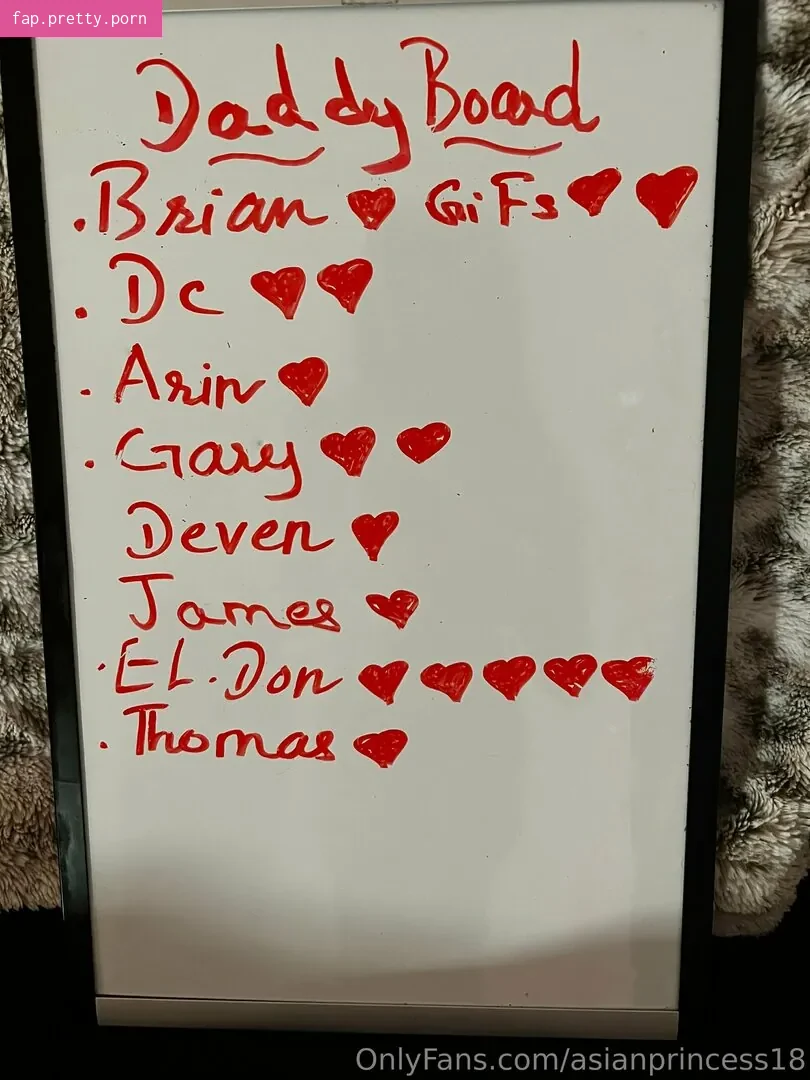 fap.pretty.porn
Daddy Board
.Brian ♥ GiFs ♥ ♥
. Dc ♥ ♥
. Arin ♥
. Gary ♥ ♥
Deven ♥
James ♥
.EL.Don ♥ ♥ ♥ ♥ ♥
. Thomas ♥
OnlyFans.com/asianprincess18